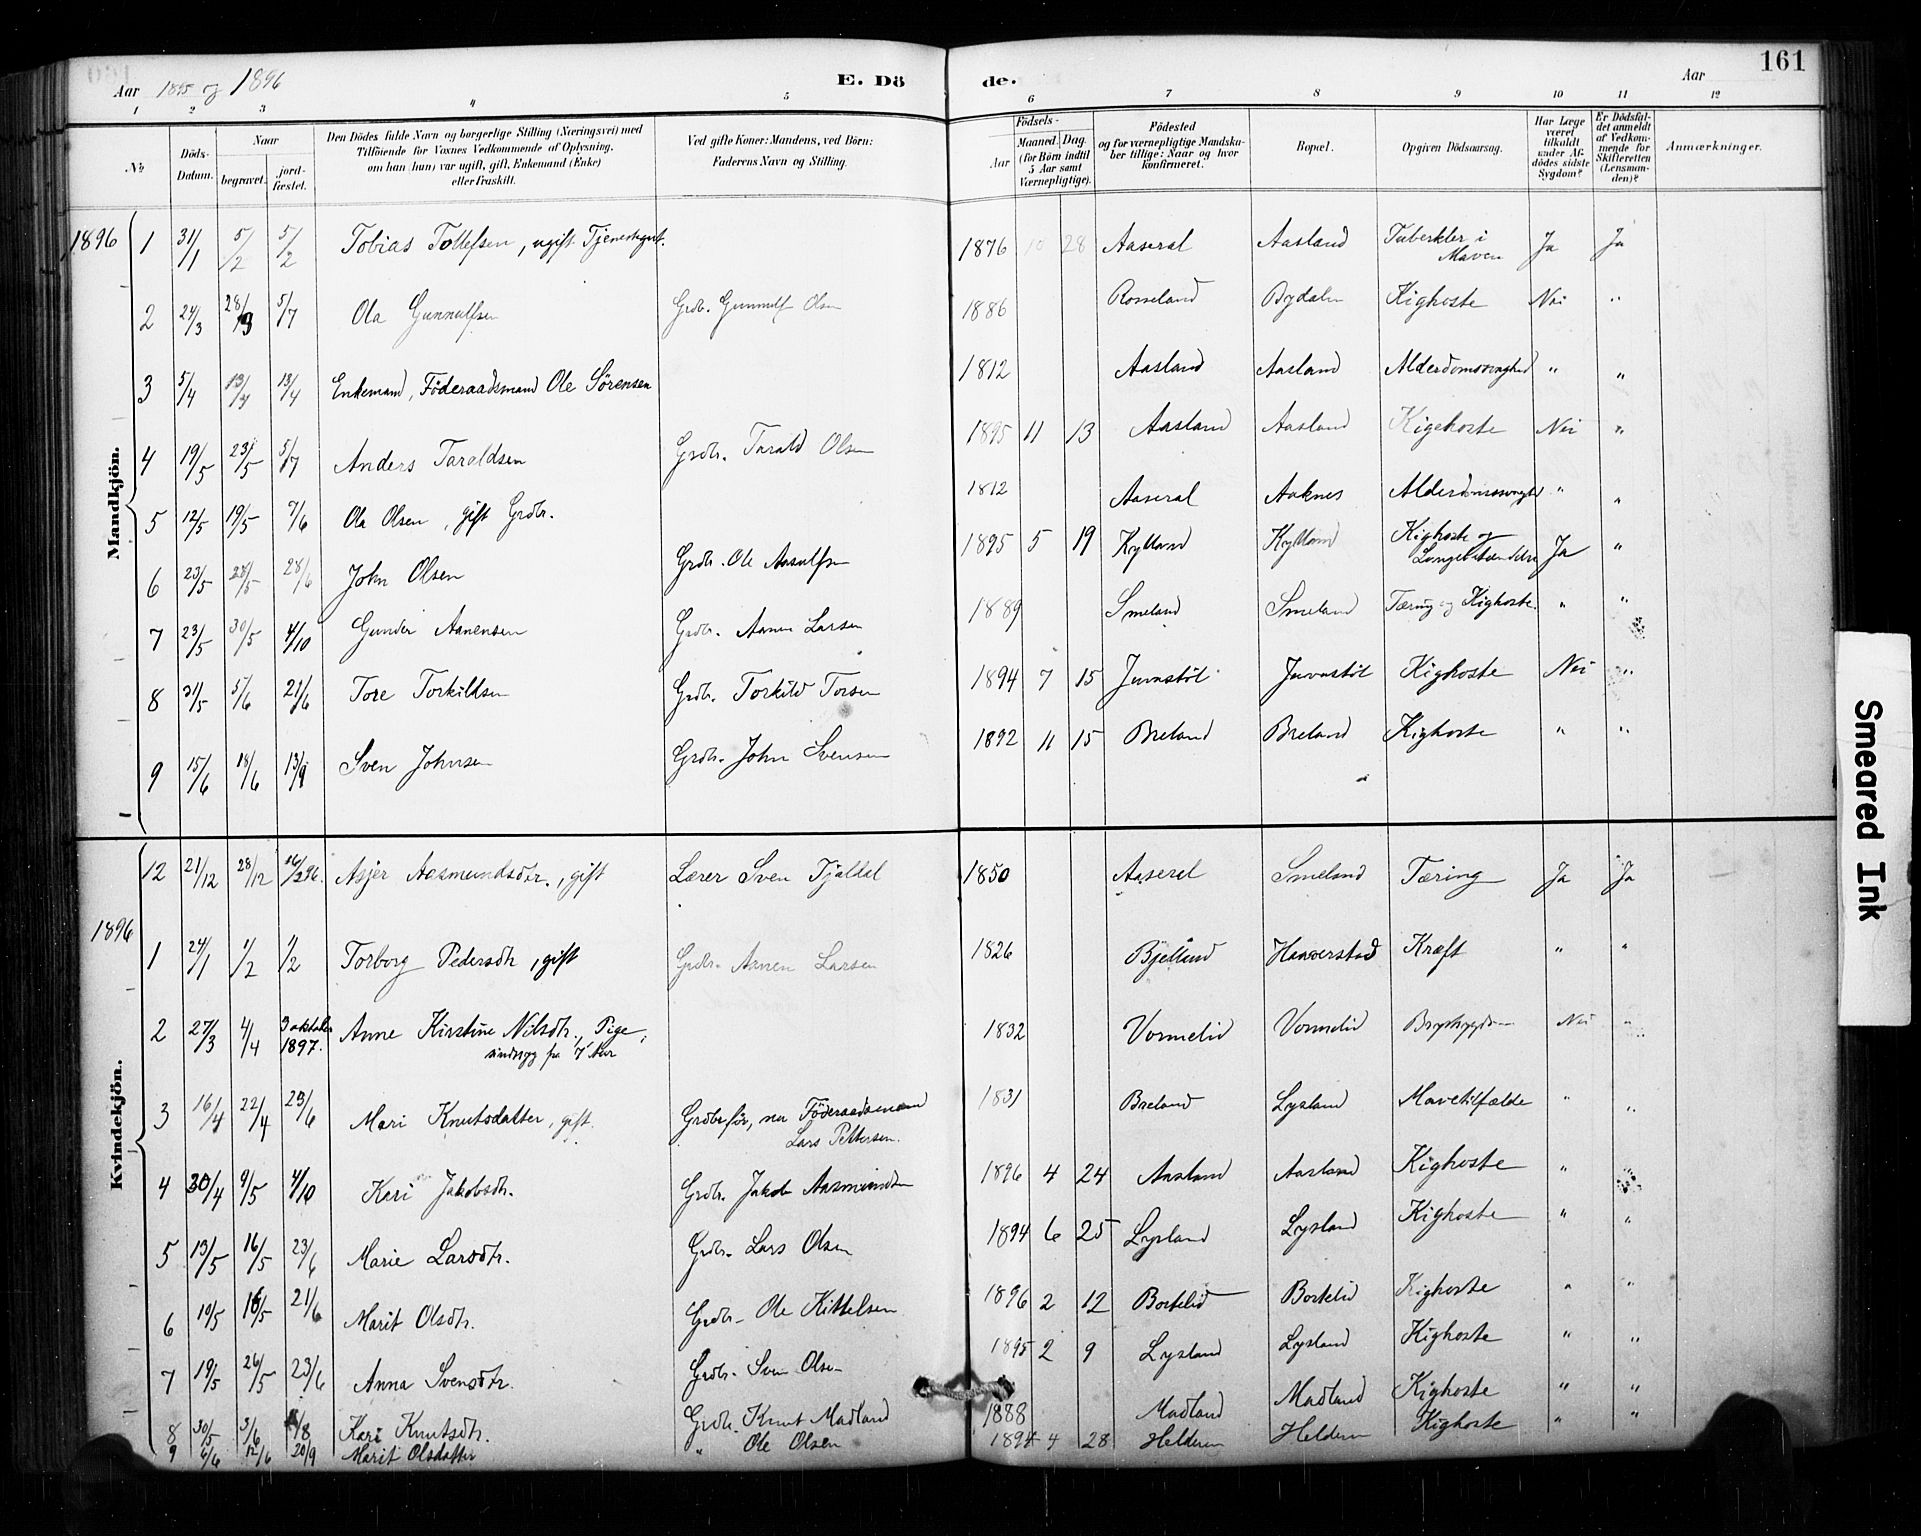 Aar 1895 og 1896 E. Dö de. Aar 161
1 2 3 4 5 6 7 8 9 10 11 12
№ Döds-Datum. Naar begravet. jord-fæstet. Den Dödes fulde Navn og borgerlige Stilling (Næringsvei) med Tilföiende for Voxnes Vedkommende af Oplysning, om han (hun) var ugift, gift, Enkemand (Enke) eller fraskilt. Ved gifte Koner: Mandens, ved Börn: Faderens Navn og Stilling. Födsels- Aar Maaned. Dag. (for Börn indtil 5 Aar samt Værnepligtige). Födested og for værnepligtige Mandskaber tillige: Naar og hvor konfirmeret. Bopæl. Opgiven Dödsaarsag. Har Læge været tilkaldt under Afdödes sidste Sygdom? Er Dödsfaldet anmeldt af Vedkommende for Skifteretten (Lensmanden)? Anmærkninger.
Mandkjön.
1896 1 31/1 5/2 5/2 Tobias Tollefsen, ugift Tjenestegut. 1876 10 28 Aaseral Aasland Tuberkler i Maven Ja Ja
2 24/3 28/3 5/7 Ola Gunnulfsen Grdbr. Gunnulf Olsen 1886 Rosseland Bydalen Kighoste Nei "
3 5/4 13/4 13/4 Enkemand, Föderaadsmand Ole Sörensen 1812 Aasland Aasland Alderdomssvaghed " "
4 19/5 23/5 5/7 Anders Taraldsen Grdbr. Tarald Olsen 1895 11 13 Aasland Aasland Kigehoste Nei "
5 12/5 19/5 7/6 Ola Olsen, gift Grdbr. 1812 Aaseral Aaknes Alderdomssvaghed " "
6 23/5 28/5 28/6 John Olsen Grdbr. Ole Aasulfsen 1895 5 19 Kylland Kylland Kighoste og Lungebetændelse Ja "
7 23/5 30/5 4/10 Gunder Aanensen Grdbr. Aanen Larsen 1889 Smeland Smeland Tæring og Kighoste. " "
8 31/5 5/6 21/6 Tore Torkildsen Grdbr. Torkild Torsen 1894 7 15 Juvastöl Juvastöl Kighoste Nei "
9 15/6 18/6 13/9 Sven Johnsen Grdbr. John Svensen 1892 11 15 Breland Breland Kighoste " "
Kvindekjön.
12 21/12 28/12 16/2 96. Asjer Aasmundsdtr., gift Lærer Sven Tjaldel 1850 Aaseral Smeland Tæring Ja Ja
1896
1 24/1 1/2 1/2 Torborg Pedersdtr, gift Grdbr. Aanen Larsen 1826 Bjelland Haaverstad Kræft " "
2 27/3 4/4 3 oktober 1897. Anne Kirstine Nilsdtr., Pige, sindssyg fra 7 Aar 1832 Vormelid Vormelid Brystsygdom Nei "
3 16/4 22/4 23/6 Mari Knutsdatter, gift. Grdbrför, nu Föderaadsmand Lars Pettersen. 1831 Breland Lysland Mavetilfælde " "
4 30/4 9/5 4/10 Kari Jakobsdtr. Grdbr. Jakob Aasmundsen 1896 4 24 Aasland Aasland Kighoste "
5 13/5 16/5 23/6 Marie Larsdtr. Grdbr. Lars Olsen 1894 6 25 Lysland Lysland Kighoste " "
6 10/5 16/5 21/6 Marit Olsdtr. Grdbr. Ole Kittelsen 1896 2 12 Bortelid Bortelid Kighoste " "
7 19/5 26/5 23/6 Anna Svensdtr. Grdbr. Sven Olsen 1895 2 9 Lysland Lysland Kighoste " "
8 30/5 3/6 /8 Kari Knutsdtr. Grdbr. Knut Madland 1888 Madland Madland Kighoste " "
9 6/6 12/6 20/9 Marit Olsdatter " Ole Olsen 1894 4 28 Helderen Helderen Kighoste " "
Smeared Ink